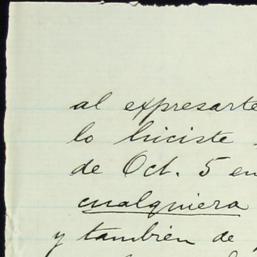 al expresarte
lo hiciste
de Oct. 5 en
cualquiera
y también de